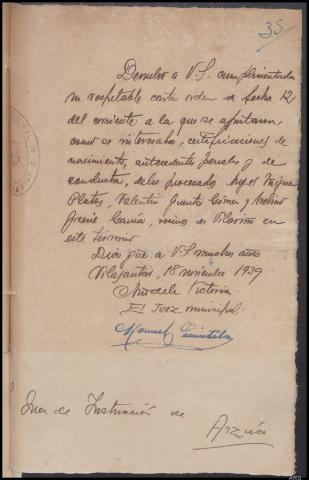 35
Devuelvo a V.S. cumplimentada
su respetable carta orden de fecha 12
del corriente a la que se ajuntaron
como se interesaba, certificaciones de
nacimiento, antecedentes penales y de
conducta, de los procesados
Platas, Valentin Gomez y
Garcia, vecinos de Vilariño en
este término
Dios gue. a V.S. muchos años
Vilasantar, 18 noviembre 1939
Año de la Victoria.
El Juez municipal.
Manuel Quintela
Juez de Instrucción de
Arzúa